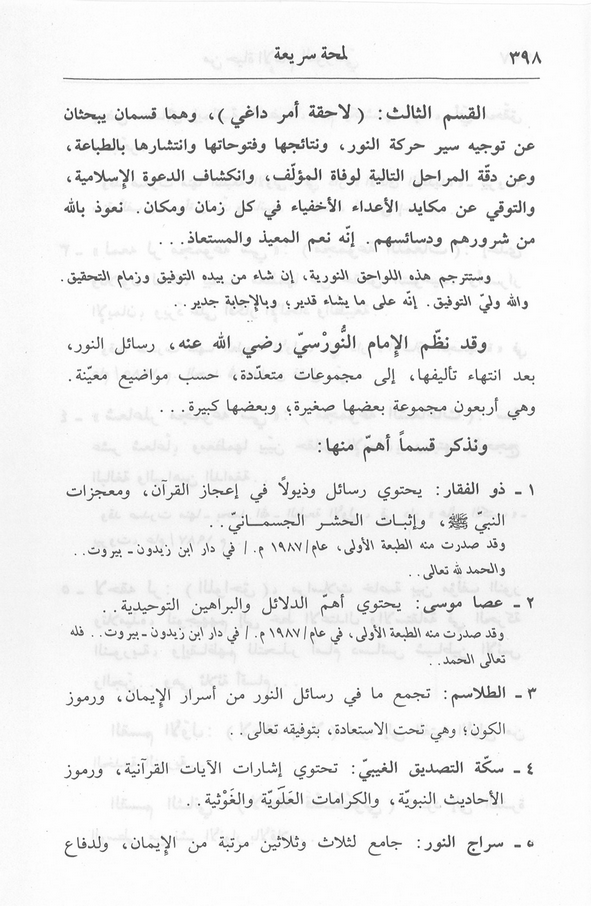 ٣٩٨ لمحة سريعة
القسم الثالث: (لاحقة أمر داغي)، وهما قسمان يبحثان
عن توجيه سير حركة النور، ونتائجها وفتوحاتها وانتشارها بالطباعة،
وعن دقّة المراحل التالية لوفاة المؤلّف، وانكشاف الدعوة الإسلامية،
والتوقي عن مكايد الأعداء الأخفياء في كل زمان ومكان. نعوذ بالله
من شرورهم ودسائسهم. إنّه نعم المعيذ والمستعاذ...
وستترجم هذه اللواحق النورية، إن شاء من بيده التوفيق وزمام التحقيق.
والله وليّ التوفيق. إنّه على ما يشاء قدير؛ وبالإجابة جدير..
وقد نظّم الإمام النُّورْسيّ رضي الله عنه، رسائل النور،
بعد انتهاء تأليفها، إلى مجموعات متعدّدة، حسب مواضيع معيّنة.
وهي أربعون مجموعة بعضها صغيرة؛ وبعضها كبيرة...
ونذكر قسماً أهمّ منها:
١ ـ ذو الفقار: يحتوي رسائل وذيولاً في إعجاز القرآن، ومعجزات
النبيّ ﷺ، وإثبات الحشر الجسمانيّ..
وقد صدرت منه الطبعة الأولى، عام/١٩٨٧ م./ في دار ابن زيدون ـ بيروت..
والحمد لله تعالى..
٢ ـ عصا موسى: يحتوي أهمّ الدلائل والبراهين التوحيدية..
وقد صدرت منه الطبعة الأولى، في عام/١٩٨٧ م./ في دار ابن زيدون ـ بيروت.. فله
تعالى الحمد..
٣ ـ الطلاسم: تجمع ما في رسائل النور من أسرار الإيمان، ورموز
الكون؛ وهي تحت الاستعادة، بتوفيقه تعالى..
٤ ـ سكّة التصديق الغيبيّ: تحتوي إشارات الآيات القرآنية، ورموز
الأحاديث النبويّة، والكرامات العَلَويّة والغَوْثية..
٥ ـ سراج النور: جامع لثلاث وثلاثين مرتبة من الإيمان، ولدفاع